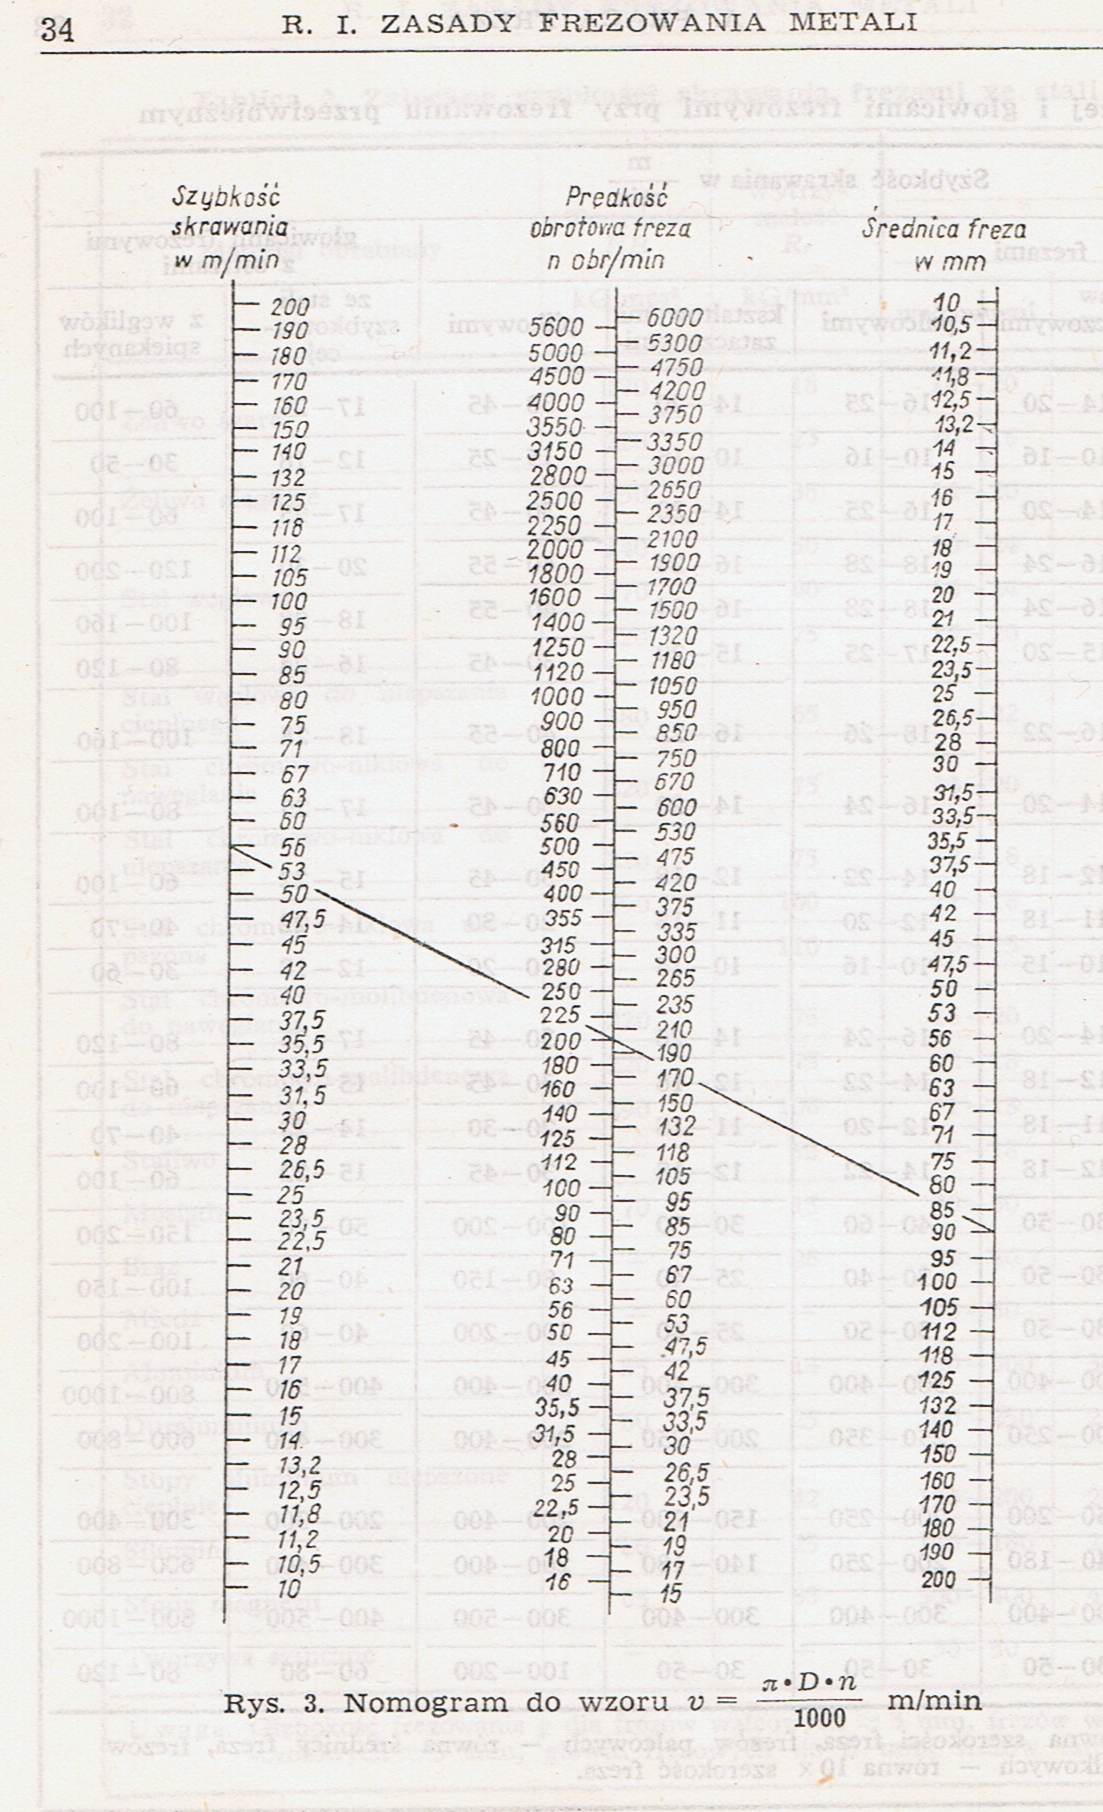 34
R. I. ZASADY FREZOWANIA METALI
Szybkość
skrawania
w m/min
200
190
180
170
160
150
140
132
125
118
112
105
100
95
90
85
80
75
71
67
63
60
56
53
50
47,5
45
42
40
37,5
35,5
33,5
31,5
30
28
26,5
25
23,5
22,5
21
20
19
18
17
16
15
14
13,2
12,5
11,8
11,2
10,5
10
Prędkość
obrotowa freza
n obr/min
5600
5000
4500
4000
3550
3150
2800
2500
2250
2000
1800
1600
1400
1250
1120
1000
900
800
710
630
560
500
450
400
355
315
280
250
225
200
180
160
140
125
112
100
90
80
71
63
56
50
45
40
35,5
31,5
28
25
22,5
20
18
16
6000
5300
4750
4200
3750
3350
3000
2650
2350
2100
1900
1700
1500
1320
1180
1050
950
850
750
670
600
530
475
420
375
335
300
265
235
210
190
170
150
132
118
105
95
85
75
67
60
53
47,5
42
37,5
33,5
30
26,5
23,5
21
19
17
15
Średnica freza
w mm
10
10,5
11,2
11,8
12,5
13,2
14
15
16
17
18
19
20
21
22,5
23,5
25
26,5
28
30
31,5
33,5
35,5
37,5
40
42
45
47,5
50
53
56
60
63
67
71
75
80
85
90
95
100
105
112
118
125
132
140
150
160
170
180
190
200
Rys. 3. Nomogram do wzoru v = π•D•n / 1000 m/min